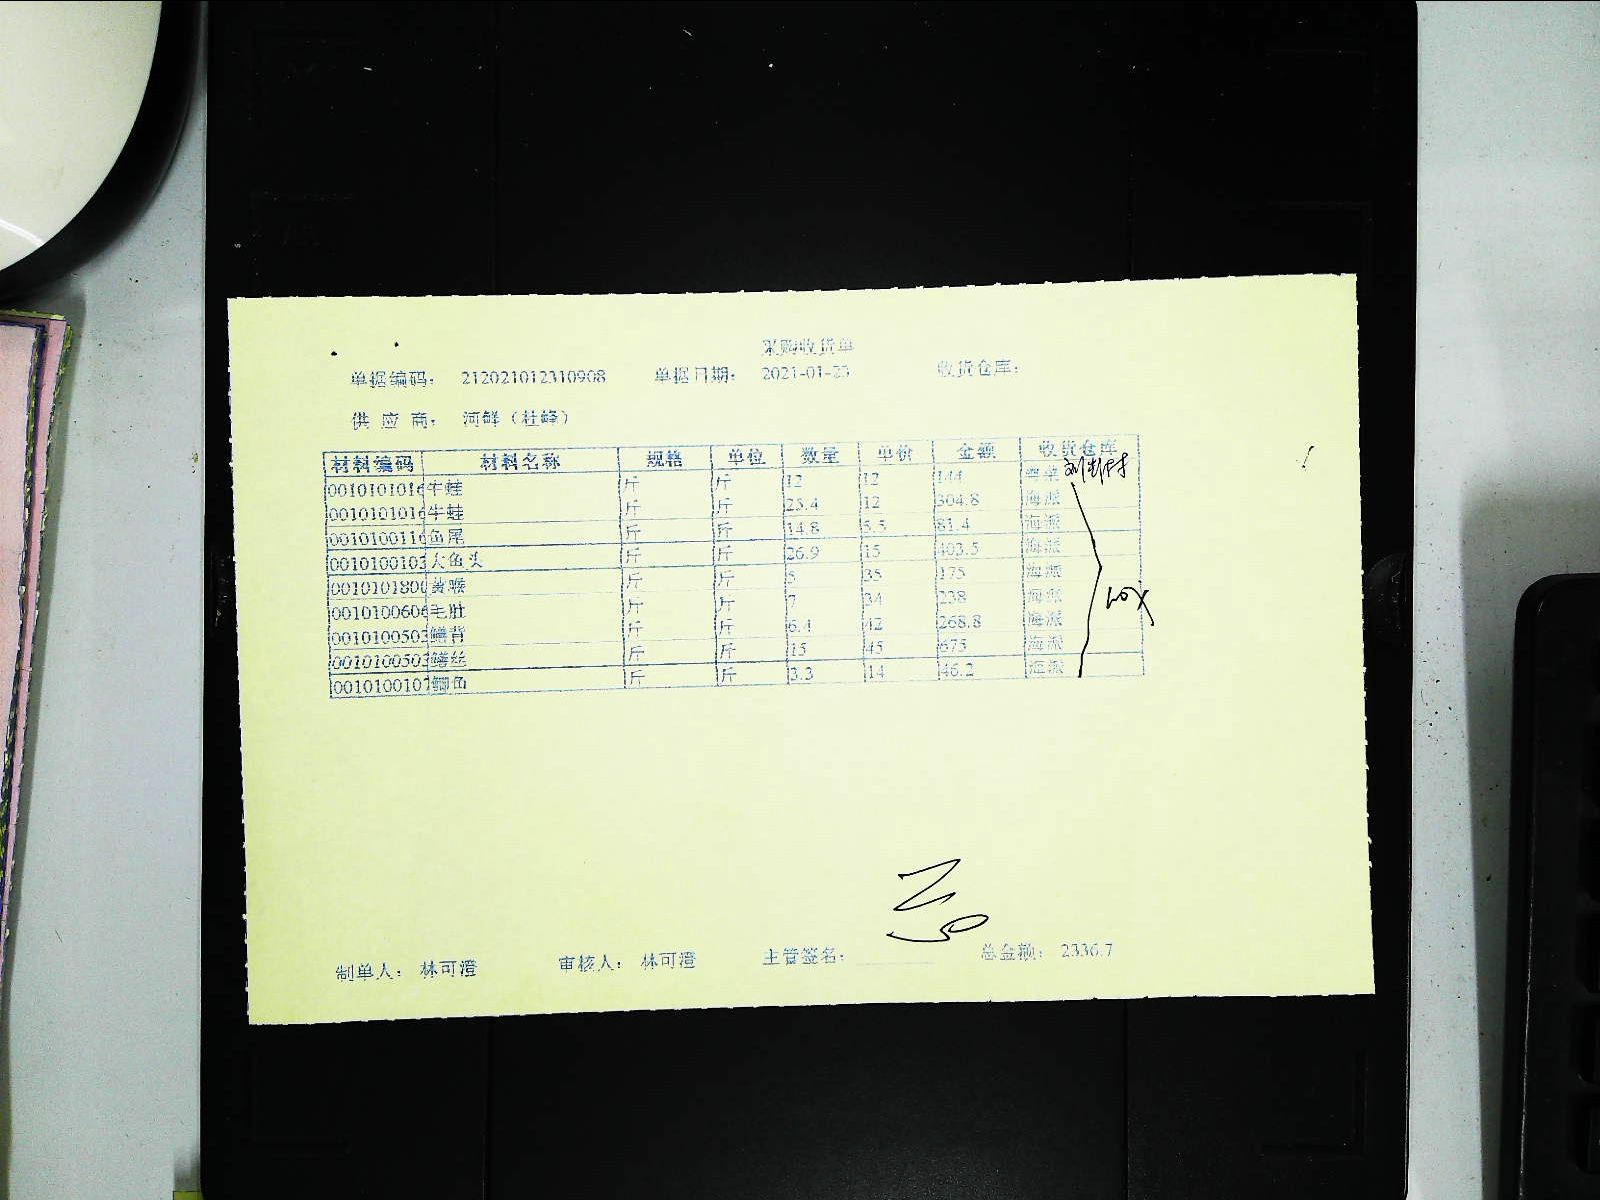 采购收货单
单据编码： 212021012310908 单据日期： 2021-01-23 收货仓库：
供 应 商： 河鲜（杜蜂）
材料编码 材料名称 规格 单位 数量 单价 金额 收货仓库
0010101016 牛蛙 斤 斤 12 12 144 粤菜
0010101016 牛蛙 斤 斤 25.4 12 304.8 海派
0010100116 鱼尾 斤 斤 14.8 5.5 81.4 海派
0010100103 大鱼头 斤 斤 26.9 15 403.5 海派
0010101800 黄喉 斤 斤 5 35 175 海派
0010100606 毛肚 斤 斤 7 34 238 海派
0010100502 鳝背 斤 斤 6.4 42 268.8 海派
0010100503 鳝丝 斤 斤 15 45 675 海派
0010100107 鲫鱼 斤 斤 3.3 14 46.2 海派
制单人： 林可澄 审核人： 林可澄 主管签名： 总金额： 2336.7